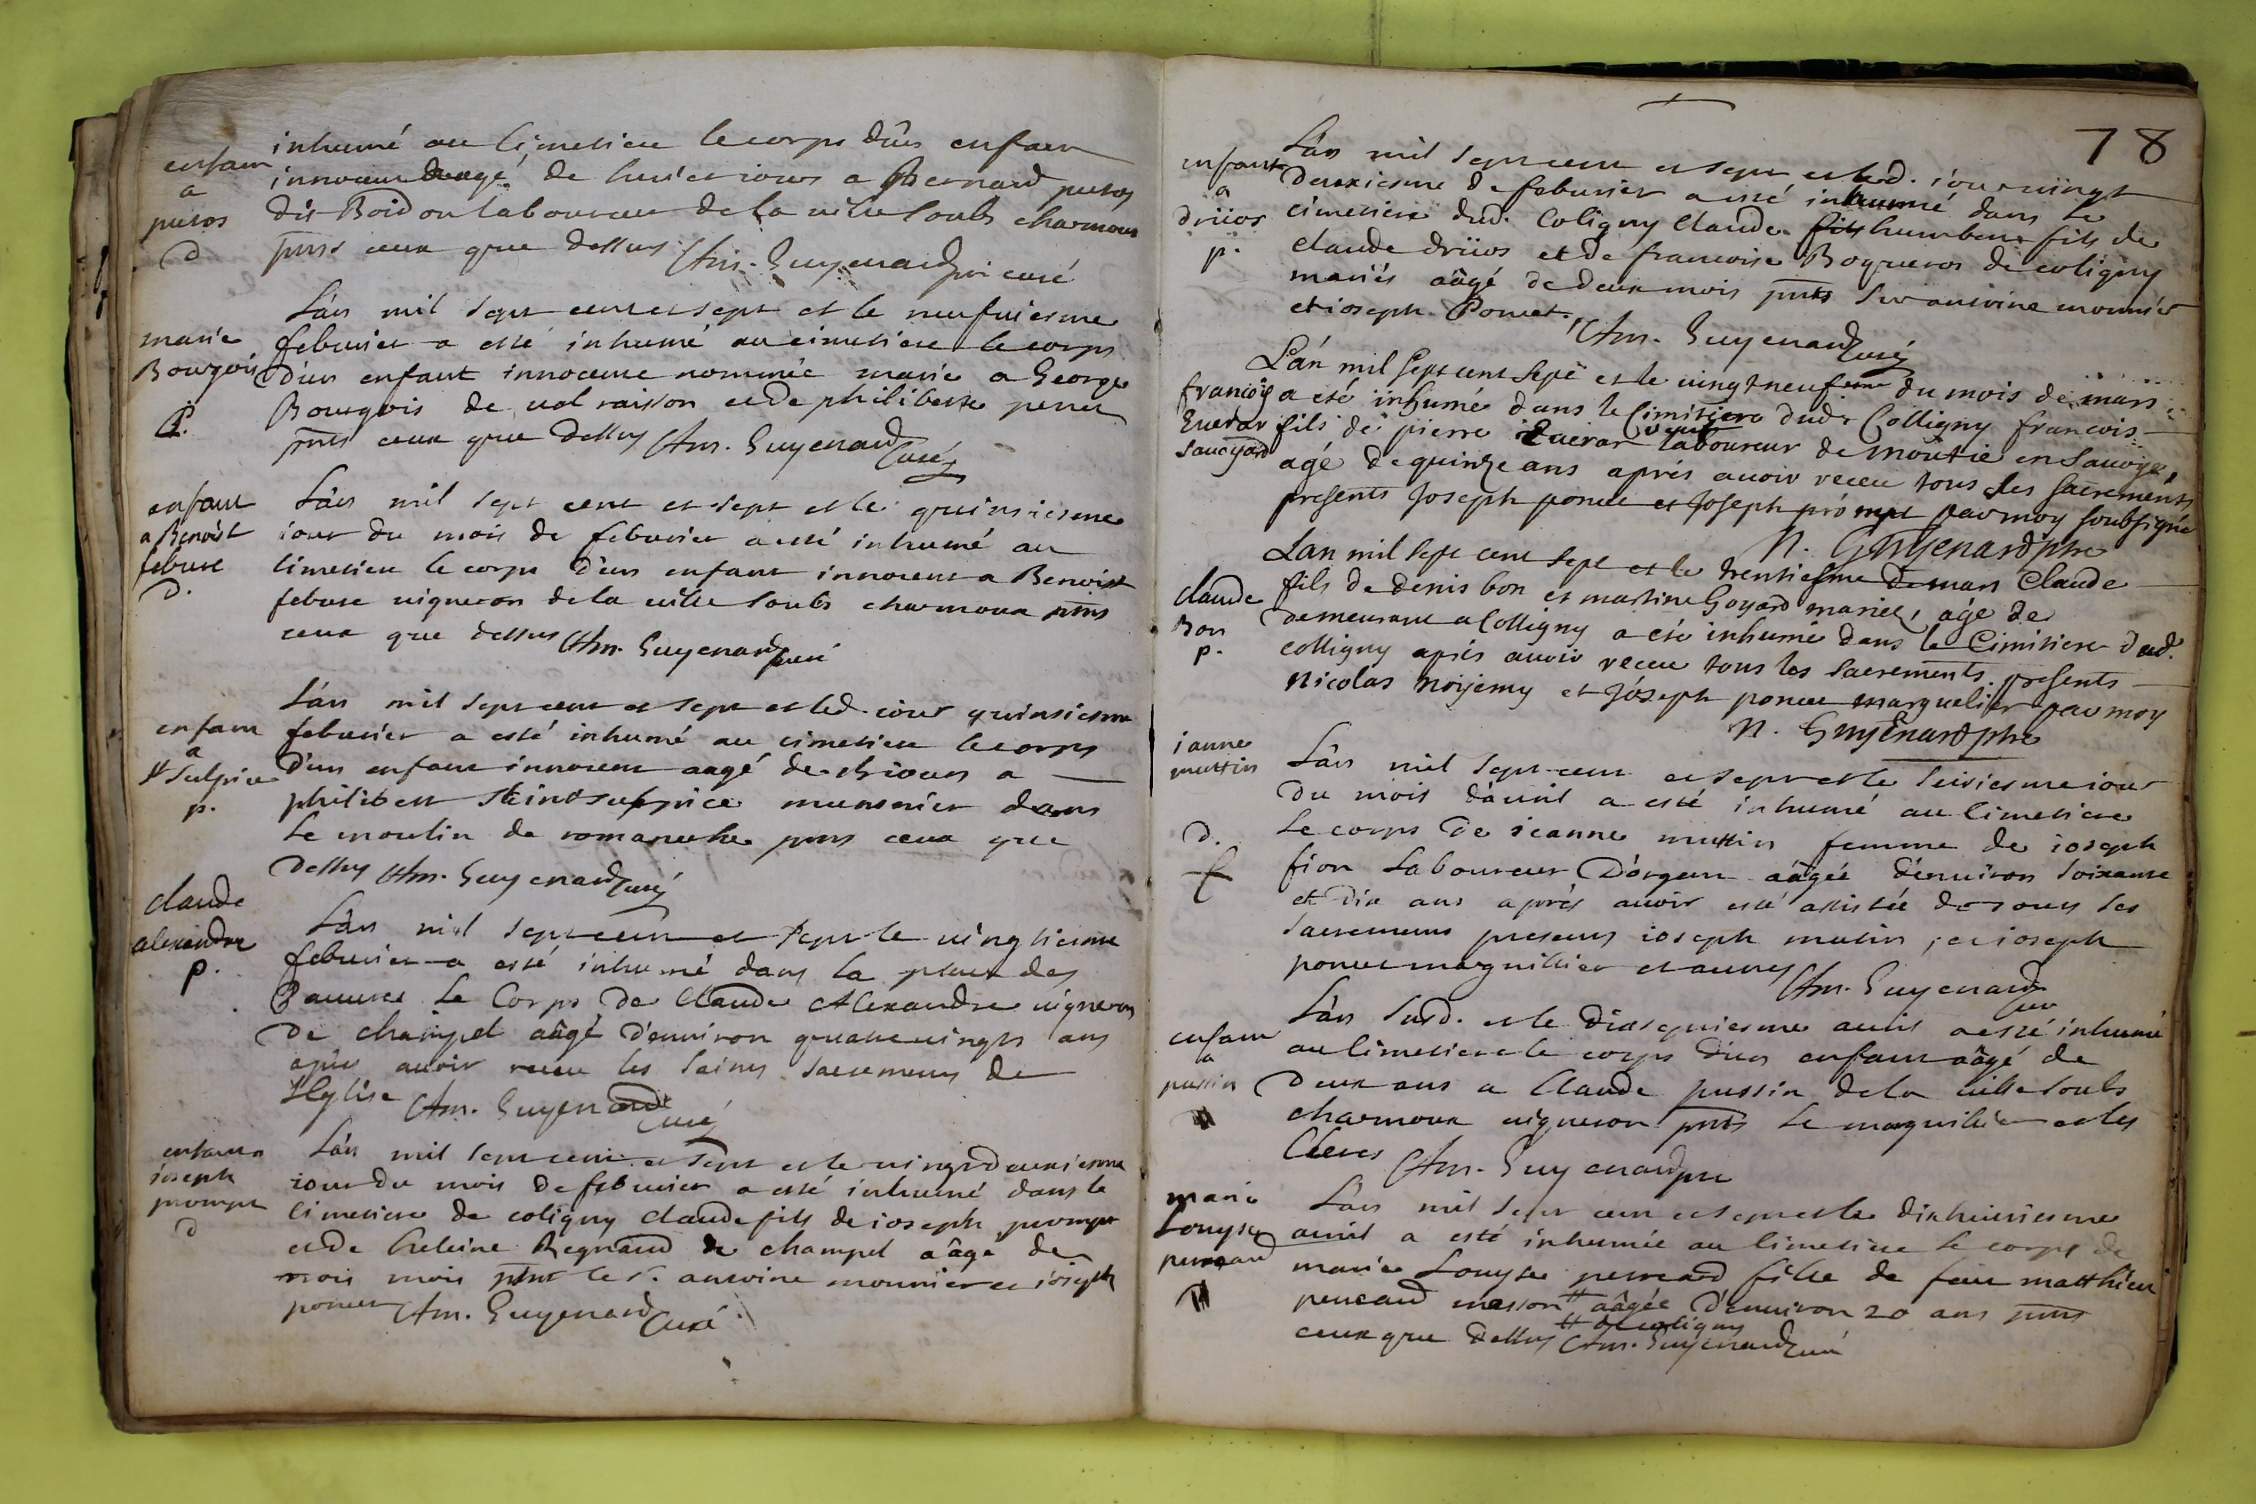 enfant
a
puros
D
inhumé au Cimetiere le corps d'un enfant
innocent aagé de huict iours a Bernard puros
dit Boidon laboureur de la ville soubs charmoux
pnts ceux que dessus Am. Guyenard curé
marie
Bourgois
P.
L'an mil sept cent et sept et le neufuiesme
feburier a esté inhumé au cimetiere le corps
d'un enfant innocent nommée marie a George
Bourgois de ual raisson et de philiberte perret
pnts ceux que dessus Am. Guyenard Curé
enfant
a Benoist
febure
D.
L'an mil sept cent et sept et le quinsiesme
iour du mois de feburier a esté inhumé au
Cimetiere le corps d'un enfant innocent a Benoist
febure uigneron de la uille soubs charmoux pnts
ceux que dessus Am. Guyenard curé
enfant
a
st Sulpice
p.
L'an mil sept cent et sept et led. iour quinsiesme
feburier a esté inhumé au cimetiere le corps
d'un enfant innocent aagé de iours a
philibert Steind sulpice munsnier dans
le moulin de romaneche pnts ceux que
dessus Am. Guyenard Curé
claude
alexandre
p.
L'an mil sept cent et sept le uingtiesme
feburier a esté inhumé dans la place des
Pauures Le Corps de Claude Alexandre uigneron
de champel aâgé d'enuiron quatreuingts ans
apres auoir receu les saints sacremens de
l'Eglise Am. Guyenard Curé
enfant a
ioseph
prompt
D
L'an mil sept cent et sept et le uingtdeuxiesme
iour du mois de feburier a esté inhumé dans le
Cimetiere de coligny claude fils de ioseph prompt
et de heleine Regnaud de champel aâgé de
trois mois pnt le sr. antoine mounier et ioseph
poncet Am. Guyenard Curé
78
enfant
a
driios
p.
L'an mil sept cent et sept et led. iour uingt
deuxiesme de feburier a esté inhumé dans le
cimetiere dud. Coligny Claude fils humbert fils de
claude driios et de francoise Boqueros de coligny
mariés aâgé de deux mois pnts Sr antoine mounier
et ioseph Poncet, Am. Guyenard Curé
francois
Eucrar
Sauoyard
L'an mil Sept cent Sept et le uingt neufiesme du mois de mars
a eté inhumé dans le Cimitiere dud. Colligny francois
fils de pierre Eucrar laboureur de moutie en Sauoye,
agé de quinze ans aprés auoir receu tous les sacrements
presents Joseph poncet et Joseph prómpt par moy soubsigné
N. Guyenard ptre
claude
Bon
p.
Lan mil sept cent sept et le trentiesme de mars Claude
fils de denis bon et martine Goyard mariez, agé de
demeurant a Colligny a eté inhumé dans le Cimitiere dud.
colligny aprés auoir receu tous les Sacrements. presents
Nicolas noijemy et Jóseph poncet marguelier par moy
N. Guyenard ptre
ianne
muttin
D.
f
L'an mil sept cent et sept et le seisiesme iour
du mois d'auril a esté inhumé au Cimetiere
Le corps de ieanne muttin femme de ioseph
fion Laboureur D'orgeu aâgée d'enuiron soixante
et dix ans aprés auoir esté assistée de tous les
sacremens presens ioseph mutin, et ioseph
poncet marguillier et autres Am. Guyenard cur
enfant
a
pussin
L'an susd. et le dixsepuiesme auril a esté inhumé
au Cimetiere le corps d'un enfant aâgé de
deux ans a Claude pussin de la uille soubs
charmoux uigneron pnts Le marguillier et les
Clercs Am. Guyenard
marie
Louyse
perreaud
L'an mil sept cent et sept et le dixhuitiesme
auril a esté inhumée au Cimetiere le corps de
marie Louyse perreaud fille de feu matthieu
perreaud masson # aâgée d'enuiron 20 ans pnts
# de coligny
ceux que dessus Am. Guyenard curé